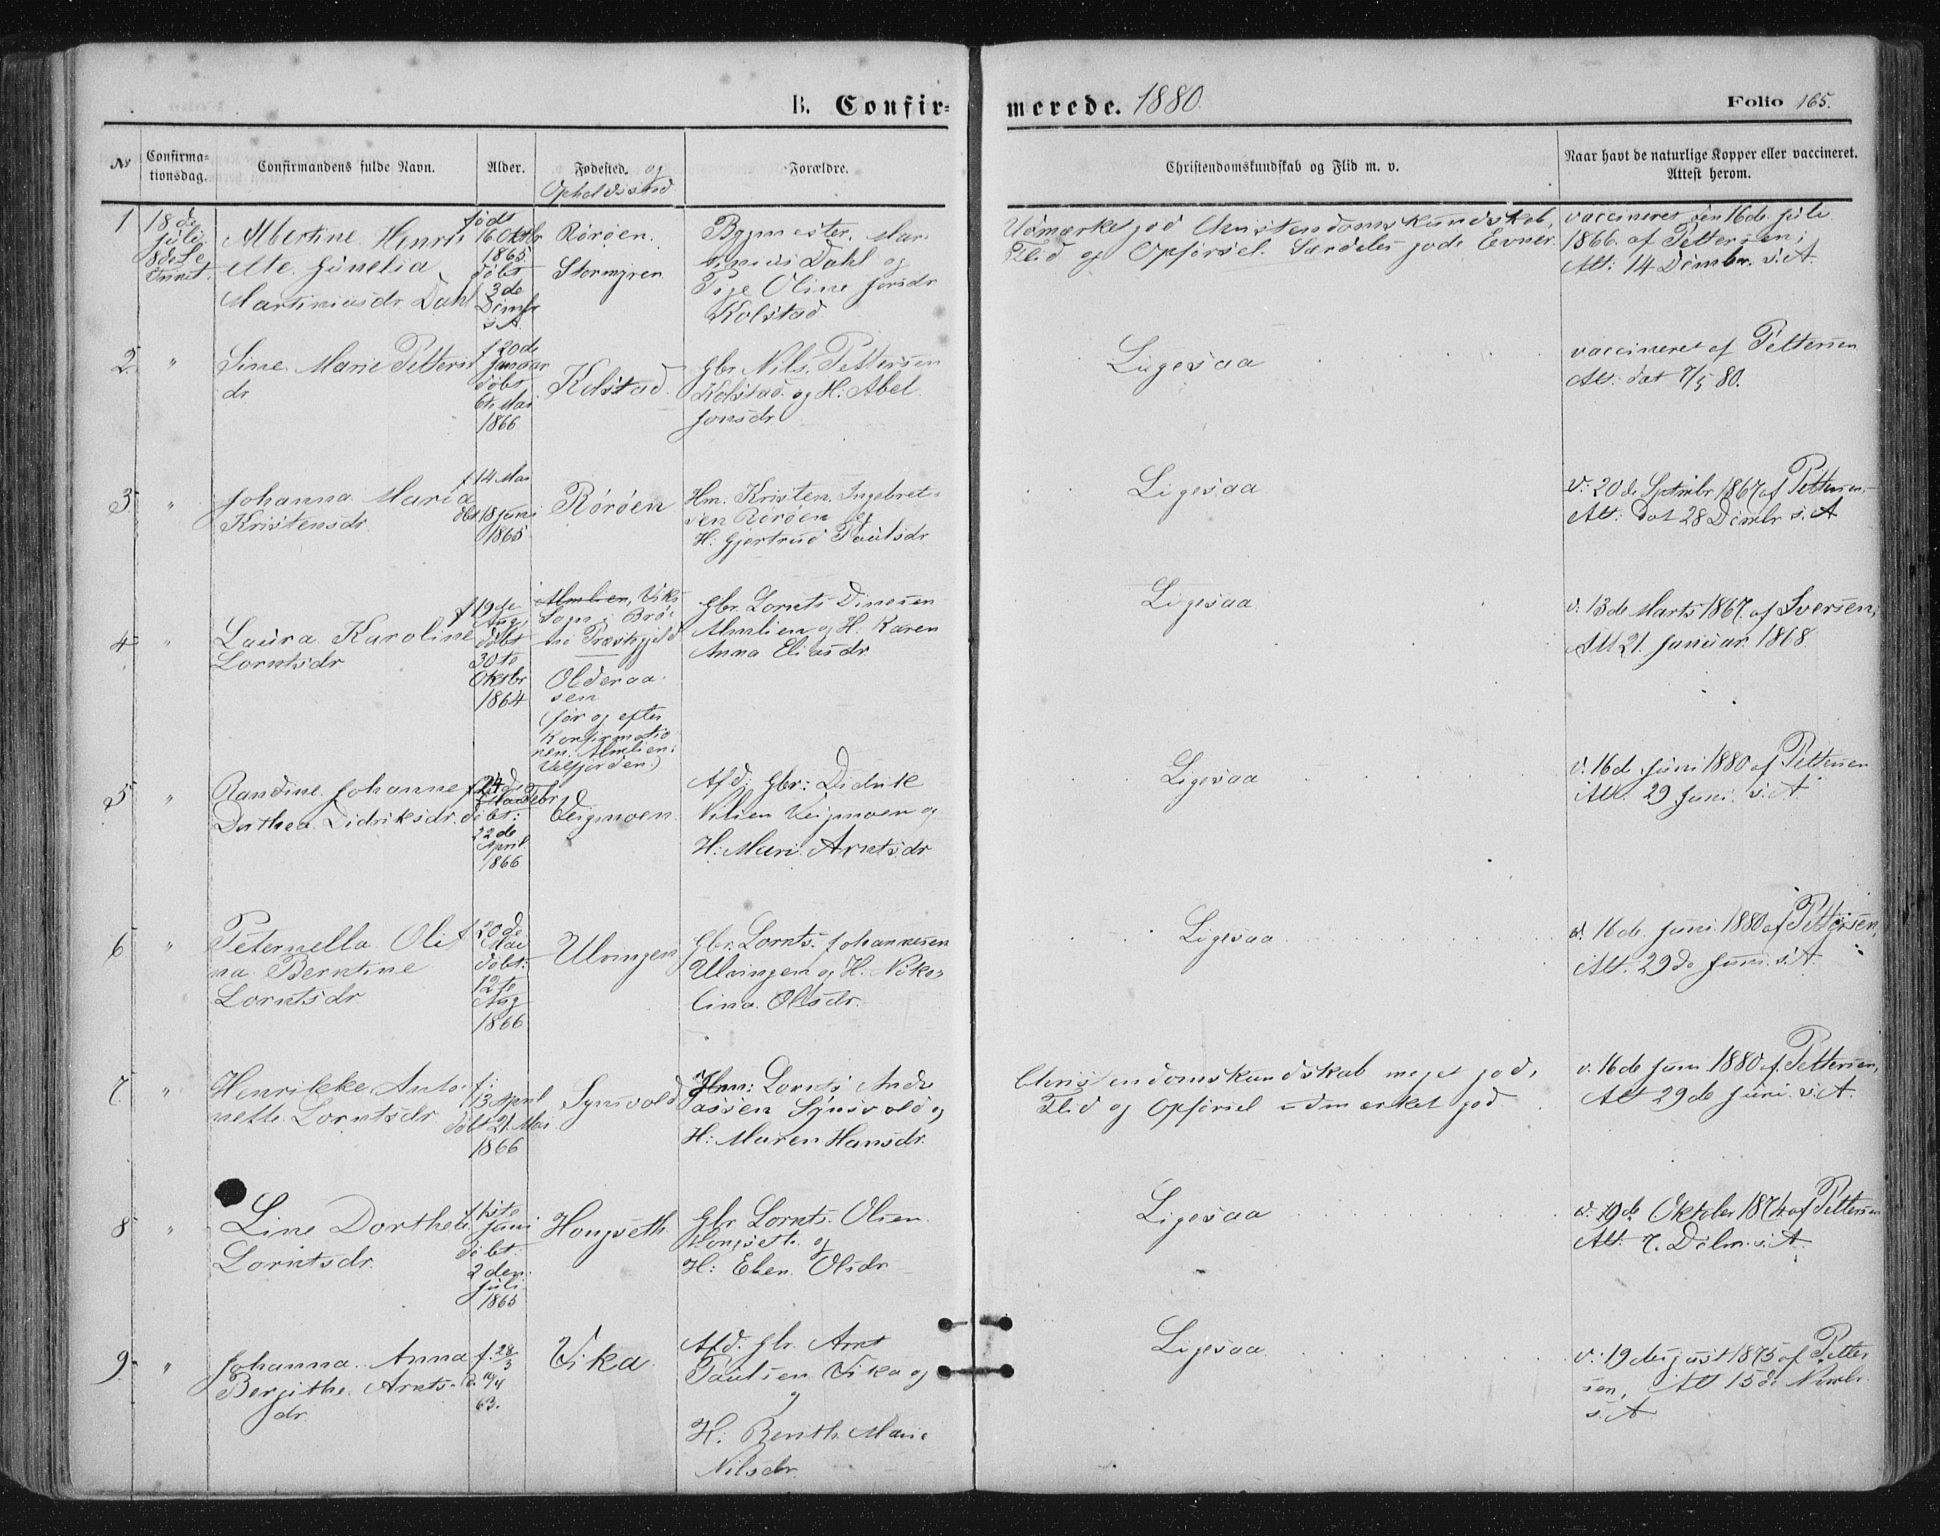 B. Confir-
merede. 1880.
Folio 165.
Nr
Confirma-
tionsdag.
Confirmandens fulde Navn.
Alder.
Fødested. og
Opholdssted
Forældre.
Christendomskundskab og Flid m. v.
Naar havt de naturlige Kopper eller vaccineret.
Attest herom.
1
18de
Juli
8de S e
Trinit.
Albertine Henri
ette Junelia
Martiniusdr. Dahl
født
16 Oktbr
1865
døbt
3de
Dcmbr
s. A.
Rørøen.
Stormyren
Bygmester. Mar-
tinius Dahl og
Pige Oline Jonsdr
Kolstad
Udmærket god Christendomskundskab,
Flid og Opførsel. Særdeles gode Evner.
vaccineret den 16de Juli
1866. af Pettersen;
Att: 14 Dcmbr. s. A.
2.
"
Sine Marie Petters
dr
f 20de
Januar
døbt
6te Mai
1866
Kolstad.
Gbr. Nils. Pettersen
Kolstad. og H: Abel
Jonsdr
Ligesaa
vaccineret af Pettersen
Att: dat 7/5 80.
3
"
Johanna Maria
Kristensdr
f. 14 Mai
døbt 18 Juni
1865
Rørøen
Hm. Kristen. Ingebret-
sen Rørøen og
H: Gjertrud Paulsdr
Ligesaa
v: 20de Septmbr 1867 af Pettersen,
Att: dat 28 Dcmbr s. A
4
"
Laura Karoline
Lorntsdr
f 19de
Aug,
døbt
30te
Oktbr
1864
Almlien, Viks
Sogn i Brø-
nø Præstegjeld
Olderaa-
sen
(før og efter
Konfirmatio
nen. Almlien:
Velfjorden)
Gbr. Lornts Dinesen
Almlien og H. Karen
Anna Eliasdr.
Ligesaa
v. 13de Marts 1867. af Iversen;
Att 21. Januar 1868
5
"
Randine Johanne
Dorthea. Didriksdr.
døbt:
22de
April
1866
Veigmoen.
Afd: Gbr: Didrik
Nilsen Veigmoen og
H: Mari. Arntsdr
Ligesaa
v. 16de Juni 1880 af Pettersen
Att. 29 Juni. s. A.
6
"
Peternella Oli
na Berntine
Lorntsdr
f 20de
Mai
døbt:
12te
Aug
1866
Ulvingen
Gbr. Lornts. Johannesen
Ulvingen og H. Niko-
lina. Olsdr.
Ligesaa
v. 16de Juni 1880 af Pettersen,
Att. 29de Juni. s. A.
7
"
Henrikke Anto-
nette Lorntsdr
f:
13 April
døbt 21. Mai
1866
Synsvold
Hm: Lornts Andre
assen Synsvold og
H: Maren Hansdr.
Christendomskundskab meget god,
Flid og Opførsel udmærket god
v. 16de Juni 1880 af Pettersen,
Att 29de Juni. s. A.
8
"
Line Dorthea
Lorntsdr.
f 1ste
Juni
døbt.
2den
Juli
1865
Hongseth
Gbr Lornts. Olsen
Hongseth. og
H: Elen. Olsdr.
Ligesaa
v. 19de Oktober 1874 af Pettersen
Att. 7. s. A.
9
"
Johanna. Anna
Bergithe. Arnts-
dr.
f. 28/3
d. 19/4
63.
Vika
Afd. Gbr. Arnt
Paulsen Vika og
og
H. Berith. Marie
Nilsdr.
Ligesaa
v: 19 August 1875 af Petter
sen, Att 15de Nvmbr.
s. A